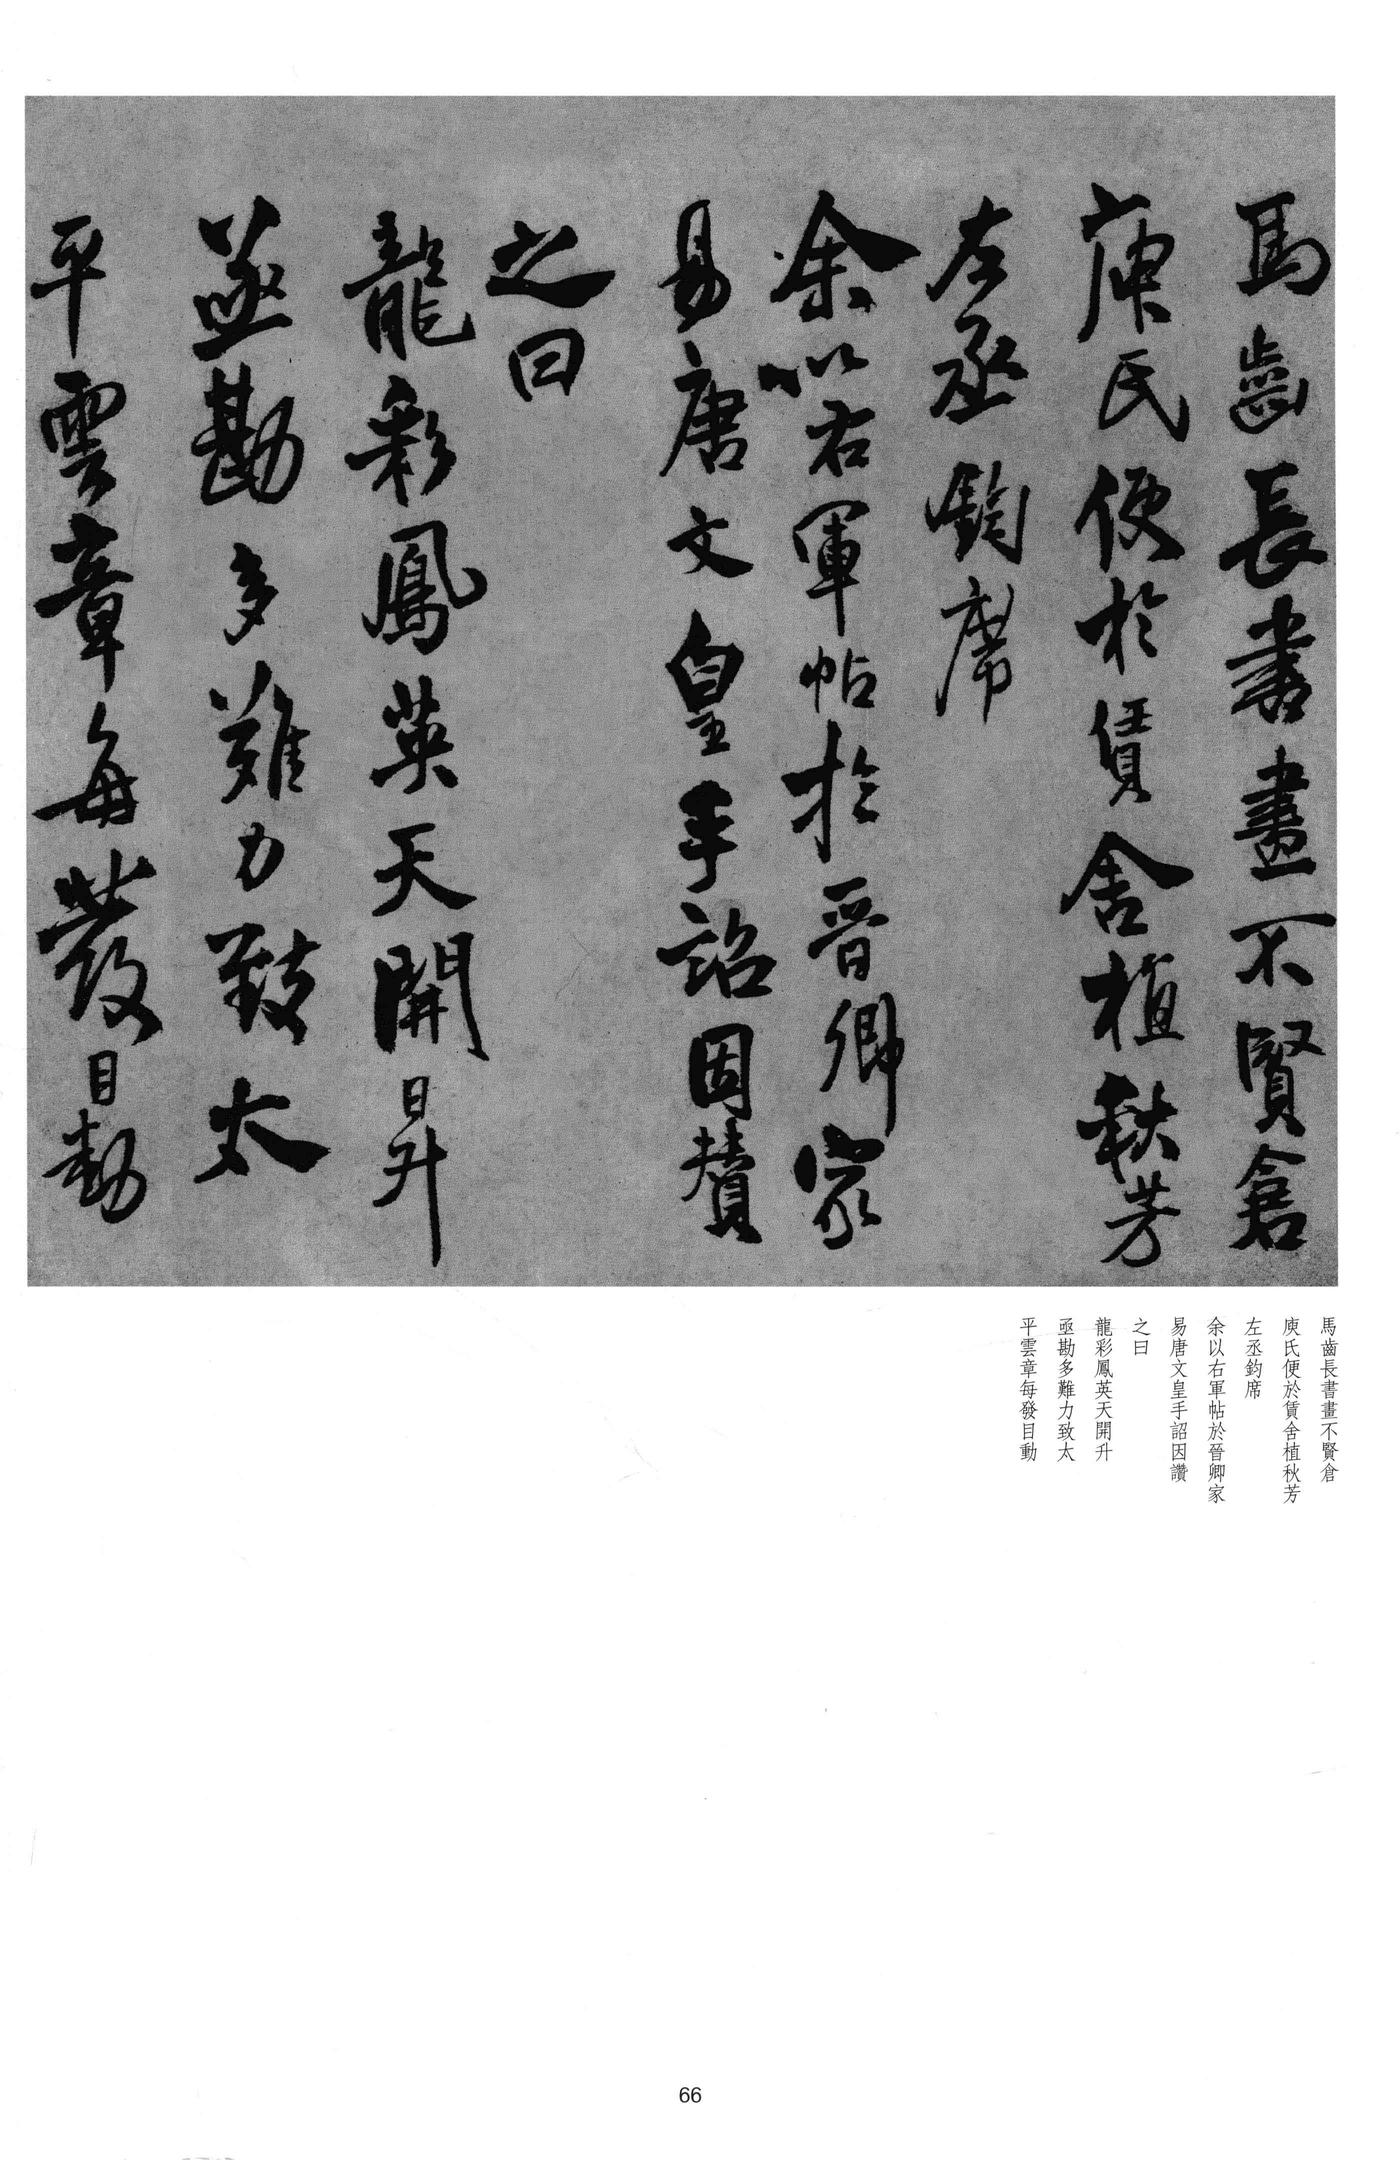 馬齒長書畫不賢倉
庾氏便於賃舍植秋芳
左丞鈞席
余以右軍帖於晉卿家
易唐文皇手詔因讚
之曰
龍彩鳳英天開日升
亟勘多難力致太
平雲章每發目動
馬齒長書畫不賢倉
庾氏便於賃舍植秋芳
左丞鈞席
余以右軍帖於晉卿家
易唐文皇手詔因讚
之曰
龍彩鳳英天開升
亟勘多難力致太
平雲章每發目動
66